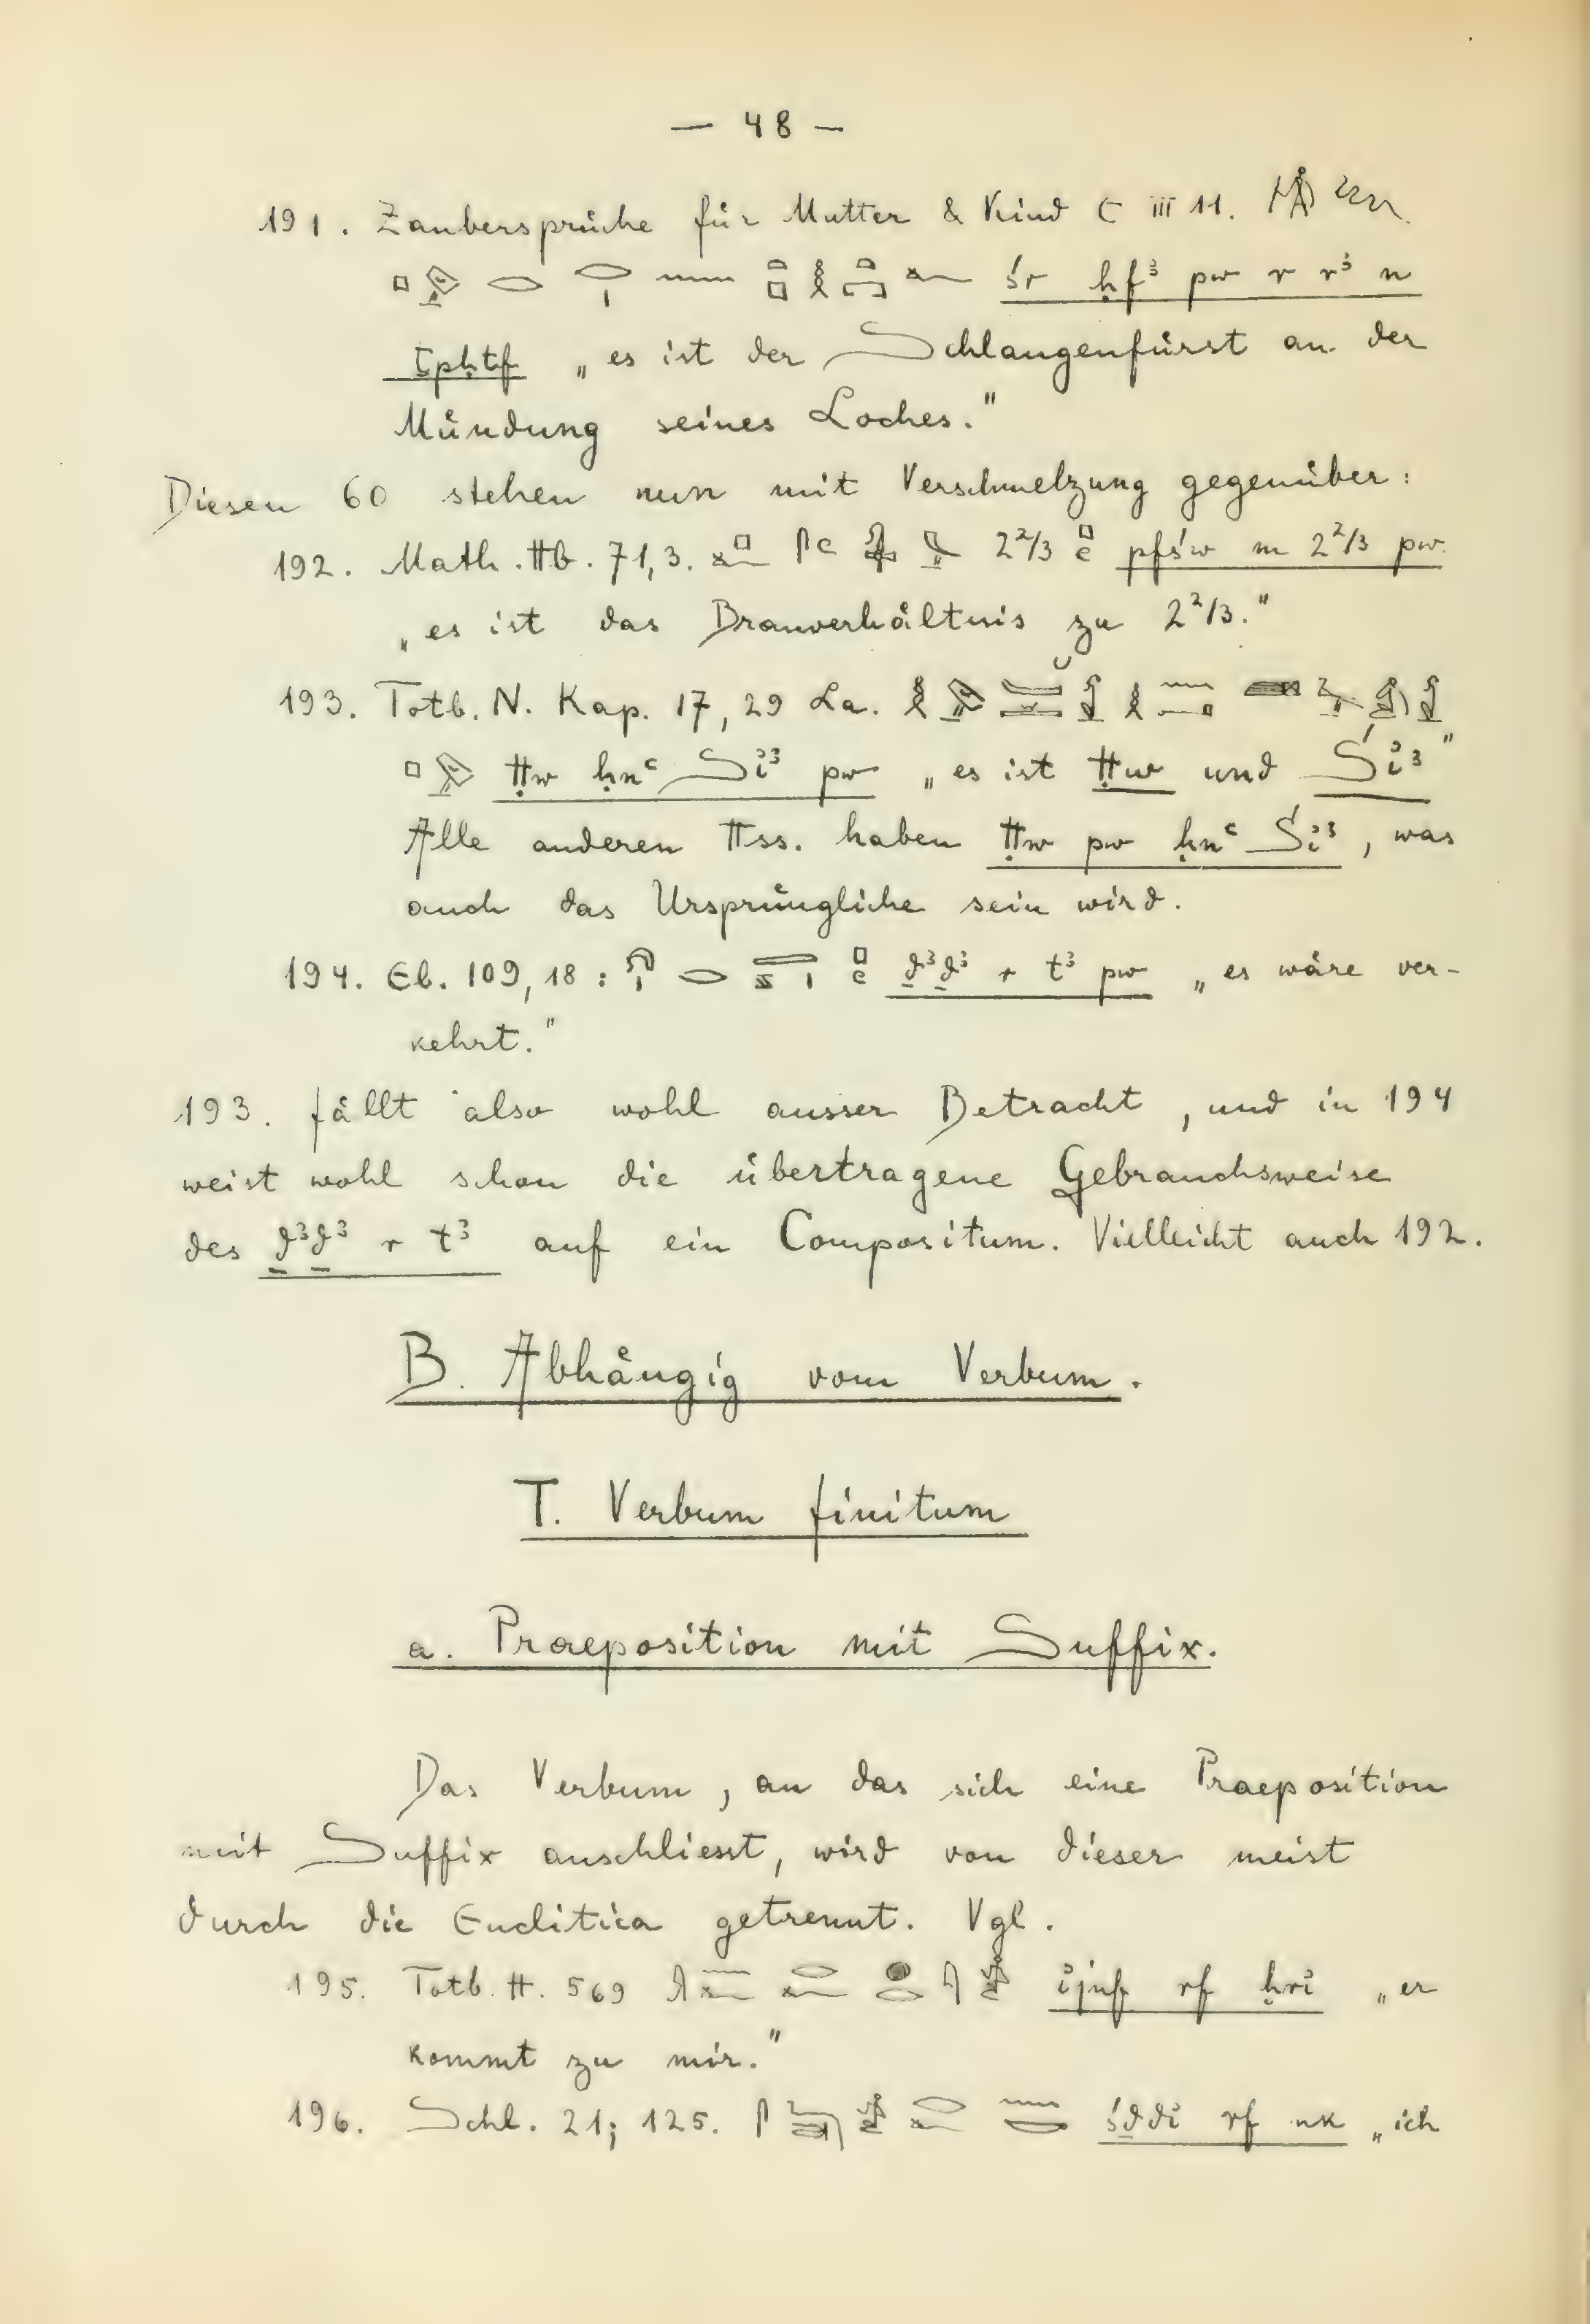 — 48 —
191. Zaubersprüche für Mutter & Kind C III 11.
śr ḥfꜣ pw r rꜣ n
ṯpḥtf „es ist der Schlangenfürst an der
Mündung seines Loches."
Diesen 60 stehen nun mit Verschmelzung gegenüber:
192. Math. Hb. 71,3. 2 2/3 pfśw m 2 2/3 pw
„es ist das Brauverhältnis zu 2 2/3."
193. Totb. N. Kap. 17, 29 La.
Ḥw ḥnꜥ Siꜣ pw „es ist Ḥw und Śiꜣ"
Alle anderen Hss. haben Ḥw pw ḥnꜥ Śiꜣ, was
auch das Ursprüngliche sein wird.
194. Eb. 109,18: ḏꜣḏꜣ r tꜣ pw „es wäre ver-
kehrt."
193. fällt also wohl ausser Betracht, und in 194
weist wohl schon die übertragene Gebrauchsweise
des ḏꜣḏꜣ r tꜣ auf ein Compositum. Vielleicht auch 192.
B. Abhängig vom Verbum.
I. Verbum finitum
a. Praeposition mit Suffix.
Das Verbum, an das sich eine Praeposition
mit Suffix anschliesst, wird von dieser meist
durch die Enclitica getrennt. Vgl.
195. Totb. H. 569 rf ḥri „er
kommt zu mir."
196. Schl. 21; 125. śḏdi rf nk „ich